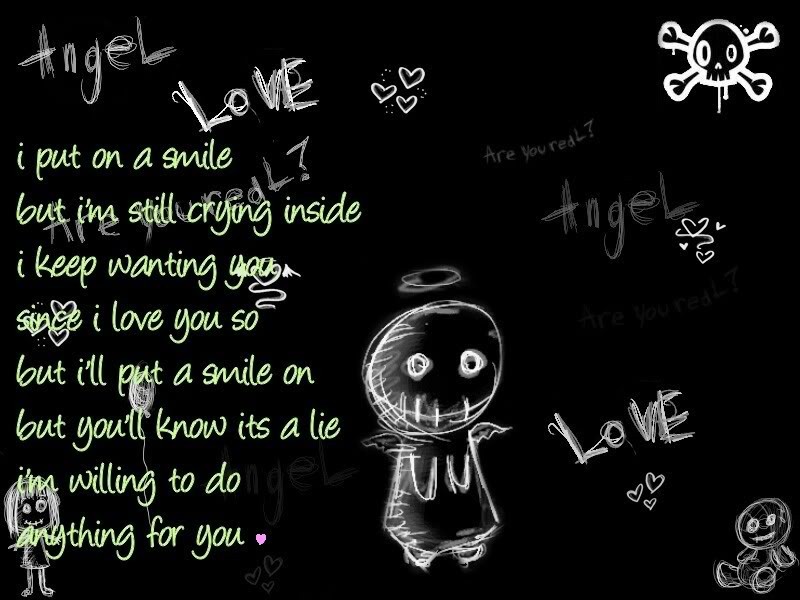 AngeL
LOVE
i put on a smile
Are you reaL?
but i'm still crying inside
Are you reaL?
AngeL
i keep wanting you
since i love you so
Are you reaL?
but i'll put a smile on
but you'll know its a lie
LOVE
AngeL
i'm willing to do
anything for you